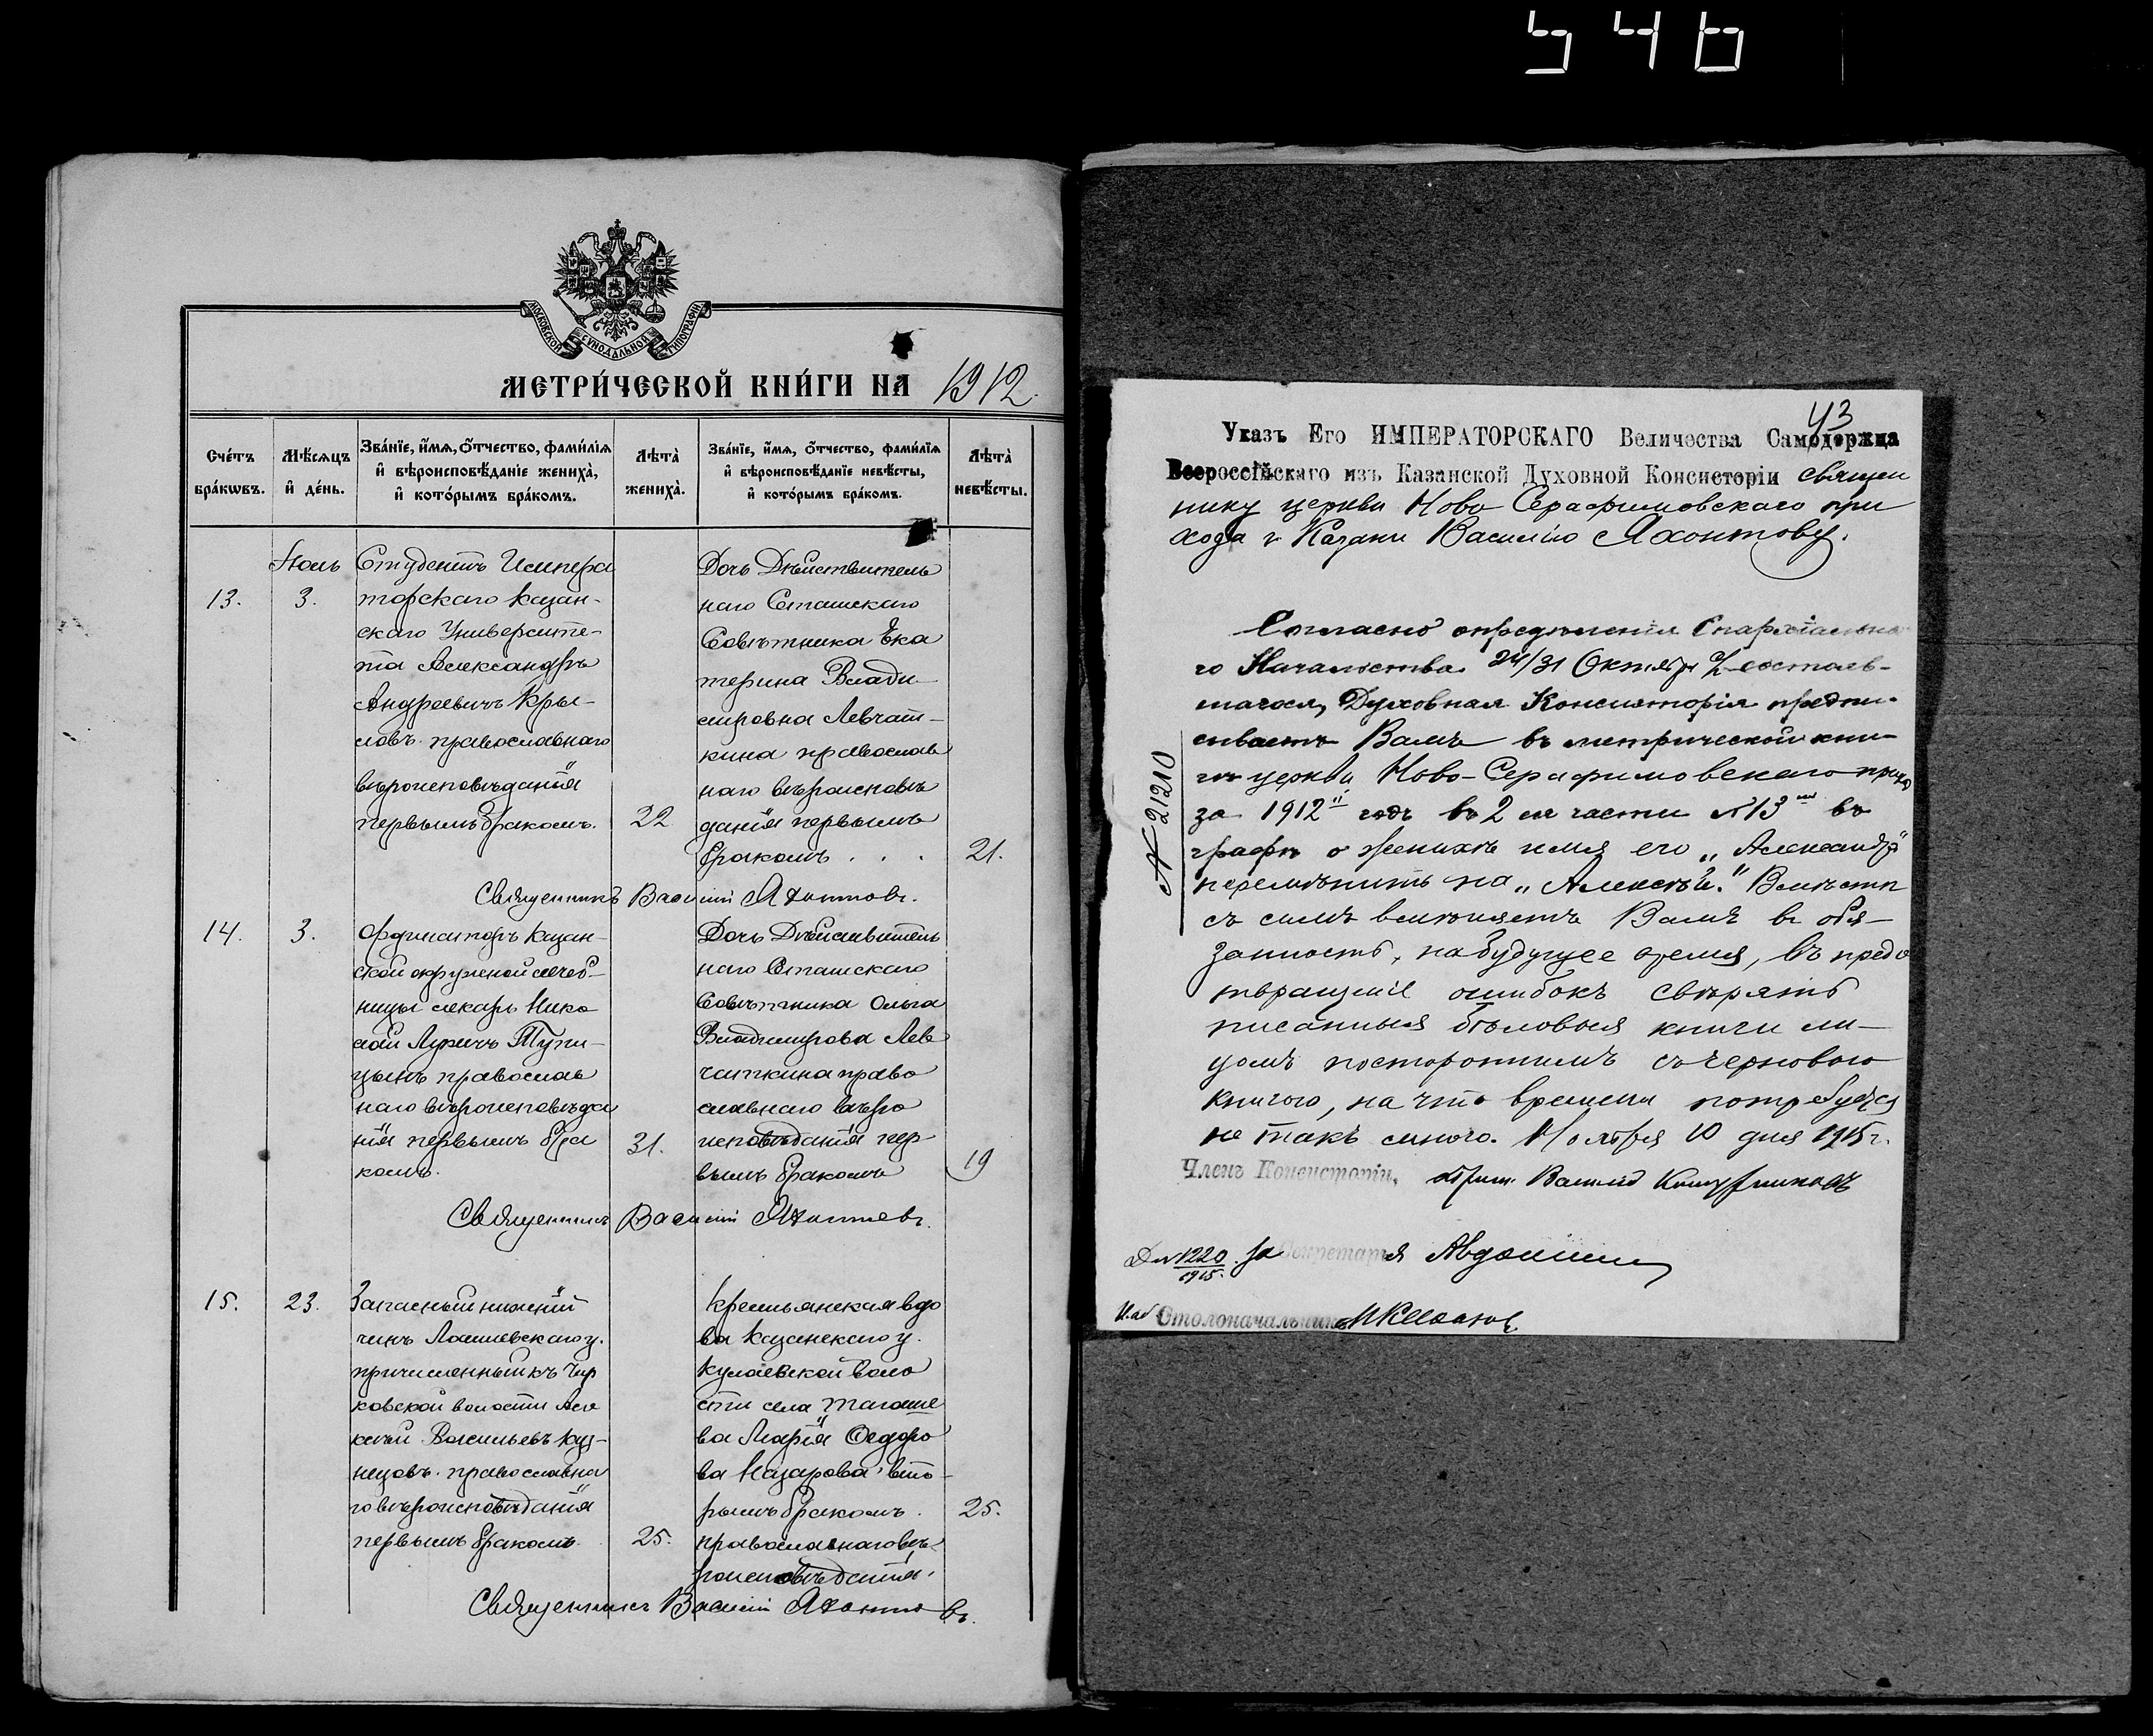 546
МОСКОВСКОЙ СѴНОДАЛЬНОЙ ТИПОГРАФІИ
МЕТРИ́ЧЕСКОЙ КНИ́ГИ НА 1912.
Сче́тъ бра́кѡвъ.
Мѣ́сѧцъ и҆ де́нь.
Зва́нїе, и҆́мѧ, ѻ҆́тчество, фами́лїѧ и҆ вѣроисповѣ́данїе жениха̀, и҆ кото́рымъ бра́комъ.
Лѣта̀ жениха̀.
Зва́нїе, и҆́мѧ, ѻ҆́тчество, фами́лїѧ и҆ вѣроисповѣ́данїе невѣ́сты, и҆ кото́рымъ бра́комъ.
Лѣта̀ невѣ́сты.
13.
3.
Студентъ Импера
торскаго Казан-
скаго Университе-
та Александръ
Андреевичъ Кры-
ловъ православнаго
вѣроисповѣданія
первымъ бракомъ.
22
Дочь Дѣйствитель
наго Статскаго
Совѣтника Ека
терина Влади
мировна Левчат-
кина православ
наго вѣроисповѣ
данія первымъ
бракомъ . . .
21.
Священникъ Василій Яхонтовъ.
14.
3.
Ординаторъ Казан-
ской окружной лечеб-
ницы лекарь Нико
лай Лукичъ Тупи-
цынъ православ
наго вѣроисповѣда
нія первымъ бра
комъ.
31.
Дочь Дѣйствитель
наго Статскаго
Совѣтника Ольга
Владимирова Лев
чаткина право
славнаго вѣро
исповѣданія пер
вымъ бракомъ
19
Священникъ Василій Яхонтовъ.
15.
23.
Запасный нижній
чинъ Лаишевскаго у.
причисленный къ Чир
ковской волости Але
ксѣй Васильевъ Куз-
нецовъ православна
го вѣроисповѣданія
первымъ бракомъ.
25.
Крестьянская вдо
ва Казанскаго у.
Кулаевской воло
сти села Тагаше
ва Марія Ѳедоро
ва Назарова вто-
рымъ бракомъ.
православнаго вѣ-
роисповѣданія.
25.
Священникъ Василій Яхонтовъ.
43
Указъ Его ИМПЕРАТОРСКАГО Величества Самодержца
Всероссійскаго изъ Казанской Духовной Консисторіи Священ
нику церкви Ново Серафимовскаго при
хода г. Казани Василію Яхонтову.
Согласно опредѣленія Епархіально
го Начальства 24/31 Октября с/г состояв-
шагося, Духовная Консисторія предпи-
сываетъ Вамъ въ метрической кни-
гѣ церкви Ново-Серафимовскаго прихо
за 1912 годъ во 2 ой части № 13 въ
графѣ о женихѣ имя его „Александръ"
перемѣнить на „Алексѣй." Вмѣстѣ
съ симъ вмѣняетъ Вамъ въ обя-
занность, на будущее время, въ предо
твращеніе ошибокъ свѣрять
писанныя бѣловыя книги ли-
цомъ постороннимъ съ черновою
книгою, на что времени потребуется
не такъ много. Ноября 10 дня 1915 г.
№ 21210
Членъ Консисторіи, Василій
Д № 1220 1915. За Секретаря
И. об Столоначальника